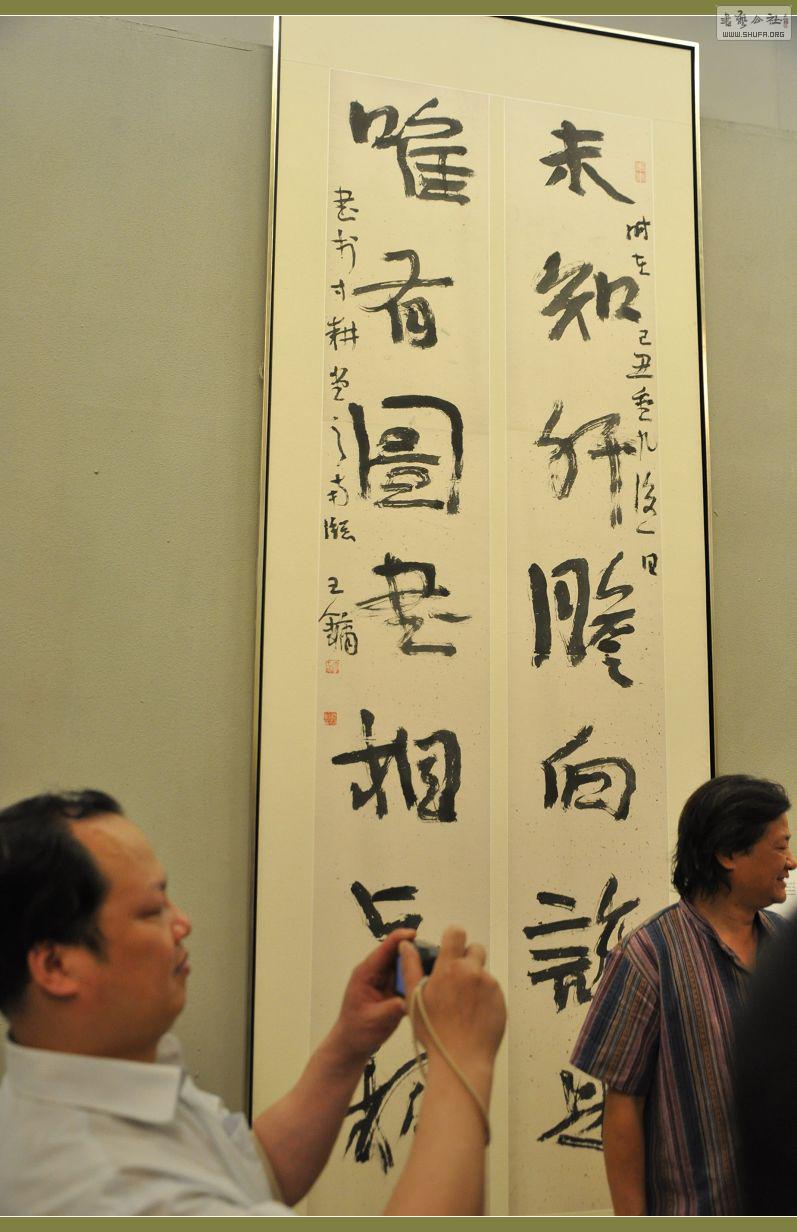 書藝公社
WWW.SHUFA.ORG
未知肝膽向誰是
時在己丑重九後一日
唯有圖書相与
書於寸耕堂之南牕
王鏞